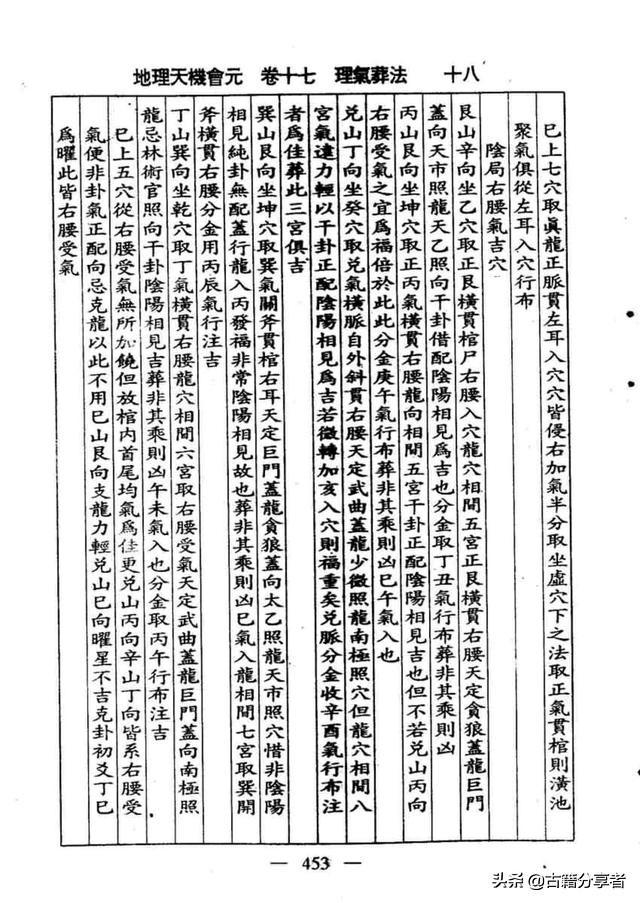 地理天機會元　卷十七　理氣葬法　十八
巳上七穴取眞龍正脈貫左耳入穴穴皆優右加氣半分取坐虛穴下之法取正氣貫棺則潢池
聚氣俱從左耳入穴行布
陰局右腰氣吉穴
艮山辛向坐乙穴取正艮橫貫棺尸右腰入穴龍穴相間五宮正艮橫貫右腰天定貪狼蓋龍巨門
蓋向天市照龍天乙照向干卦借配陰陽相見爲吉也分金取丁丑氣行布葬非其乘則凶
丙山艮向坐坤穴取正丙氣橫貫右腰龍向相間五宮干卦正配陰陽相見吉也但不若兌山丙向
右腰受氣之宜爲福倍於此此分金庚午氣行布葬非其乘則凶巳午氣入也
兌山丁向坐癸穴取兌氣橫脈自外斜貫右腰天定武曲蓋龍少微照龍南極照穴但龍穴相間八
宮氣遠力輕以干卦正配陰陽相見爲吉若微轉加亥入穴則福重矣兌脈分金收辛酉氣行布注
者爲佳葬此三宮俱吉
巽山艮向坐坤穴取巽氣關斧貫棺右耳天定巨門蓋龍貪狼蓋向太乙照龍天市照穴惜非陰陽
相見純卦無配蓋行龍入丙發福非常陰陽相見故也葬非其乘則凶巳氣入龍相間七宮取巽開
斧橫貫右腰分金用丙辰氣行注吉
丁山巽向坐乾穴取丁氣橫貫右腰龍穴相間六宮取右腰受氣天定武曲蓋龍巨門蓋向南極照
龍忌林術官照向干卦陰陽相見吉葬非其乘則凶午未氣入也分金取丙午行布注吉
巳上五穴從右腰受氣無所加饒但放棺內首尾均氣爲佳更兌山丙向辛山丁向皆系右腰受
氣便非卦氣正配向忌克龍以此不用巳山艮向支龍力輕兌山巳向曜星不吉克卦初爻丁巳
爲曜此皆右腰受氣
— 453 —
头条 @古籍分享者